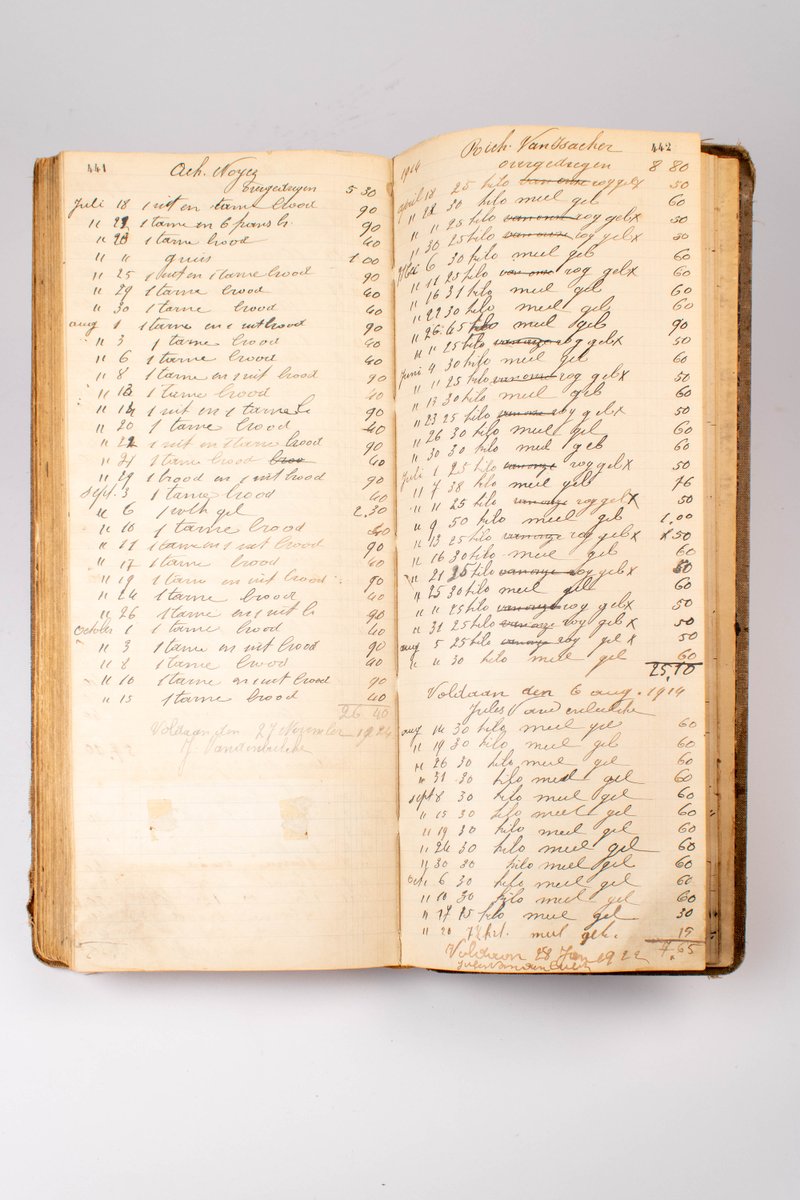 441
Ach. Noyez
overgedregen 5 30
Juli 18 1 uit en tarne brood 90
" 22 1 tarne en 6 frans b. 90
" 23 1 tarne brood 40
" " gruis 1 00
" 25 1 uit en 1 tarne brood 90
" 29 1 tarne brood 40
" 30 1 tarne brood 40
aug 1 1 tarne en 1 uit brood 90
" 3 1 tarne brood 40
" 6 1 tarne brood 40
" 8 1 tarne en 1 uit brood 90
" 13 1 tarne brood 40
" 14 1 uit en 1 tarne b 90
" 20 1 tarne brood 40
" 22 1 uit en 1 tarne brood 90
" 21 1 tarne brood 40
" 29 1 brood en 1 uit brood 90
Sept. 3 1 tarne brood 40
" 6 1 volk gel 2,30
" 10 1 tarne brood 40
" 11 1 tarne en 1 uit brood 90
" 17 1 tarne brood 40
" 19 1 tarne en 1 uit brood 90
" 24 1 tarne brood 40
" 26 1 tarne en 1 uit b 90
October 1 1 tarne brood 40
" 3 1 tarne en 1 uit brood 90
" 8 1 tarne brood 40
" 10 1 tarne en 1 uit brood 90
" 15 1 tarne brood 40
26 40
Voldaan den 27 November 1924
J. Vandenbulcke
442
Rich. VanIsacker
1914 overgedregen 8 80
april 18 25 kilo van onze rog gel x 50
" 22 30 kilo meul gel 60
" " 25 kilo van onze rog gel x 50
" 30 25 kilo van onze rog gel x 50
Mei 6 30 kilo meul gel 60
" 11 25 kilo van onze rog gel x 50
" 16 31 kilo meul gel 60
" 22 30 kilo meul gel 60
" 26 45 kilo meul gel 90
" " 25 kilo van onze rog gel x 50
Juni 4 30 kilo meul gel 60
" " 25 kilo van onze rog gel x 50
" 13 30 kilo meul gel 60
" 23 25 kilo van onze rog gel x 50
" 26 30 kilo meul gel 60
" 30 30 kilo meul gel 60
Juli 1 25 kilo van onze rog gel x 50
" 7 38 kilo meul gel 76
" " 25 kilo van onze rog gel x 50
" 9 50 kilo meul gel 1,00
" 13 25 kilo van onze rog gel x x 50
" 16 30 kilo meul gel 60
" 21 25 kilo van onze rog gel x 50
" 25 30 kilo meul gel 60
" " 25 kilo van onze rog gel x 50
" 31 25 kilo van onze rog gel x 50
aug 5 25 kilo van onze rog gel x 50
" " 30 kilo meul gel 60
25,10
Voldaan den 6 aug. 1914
Jules Vandenbulcke
aug 14 30 kilo meul gel 60
" 19 30 kilo meul gel 60
" 26 30 kilo meul gel 60
" 31 30 kilo meul gel 60
Sept 8 30 kilo meul gel 60
" 15 30 kilo meul gel 60
" 19 30 kilo meul gel 60
" 24 30 kilo meul gel 60
" 30 30 kilo meul gel 60
Oct. 6 30 kilo meul gel 60
" 10 30 kilo meul gel 60
" 17 15 kilo meul gel 30
" 20 7½ kil. meul gel. 15
Voldaan 28 Jan 1922 7.65
Jules Vandenbulck